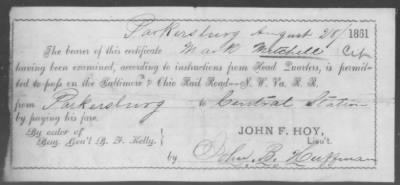 Parkersburg August 28 1861
The bearer of this certificate Mark Mitchell Cit
having been examined, according to instructions from Head Quarters, is permit-
ted to pass on the Baltimore & Ohio Rail Road--N. W. Va. R. R.
from Parkersburg to Central Station
by paying his fare.
By order of JOHN F. HOY,
Brig. Gen'l B. F. Kelly. Lieu't.
by John B. Huffman